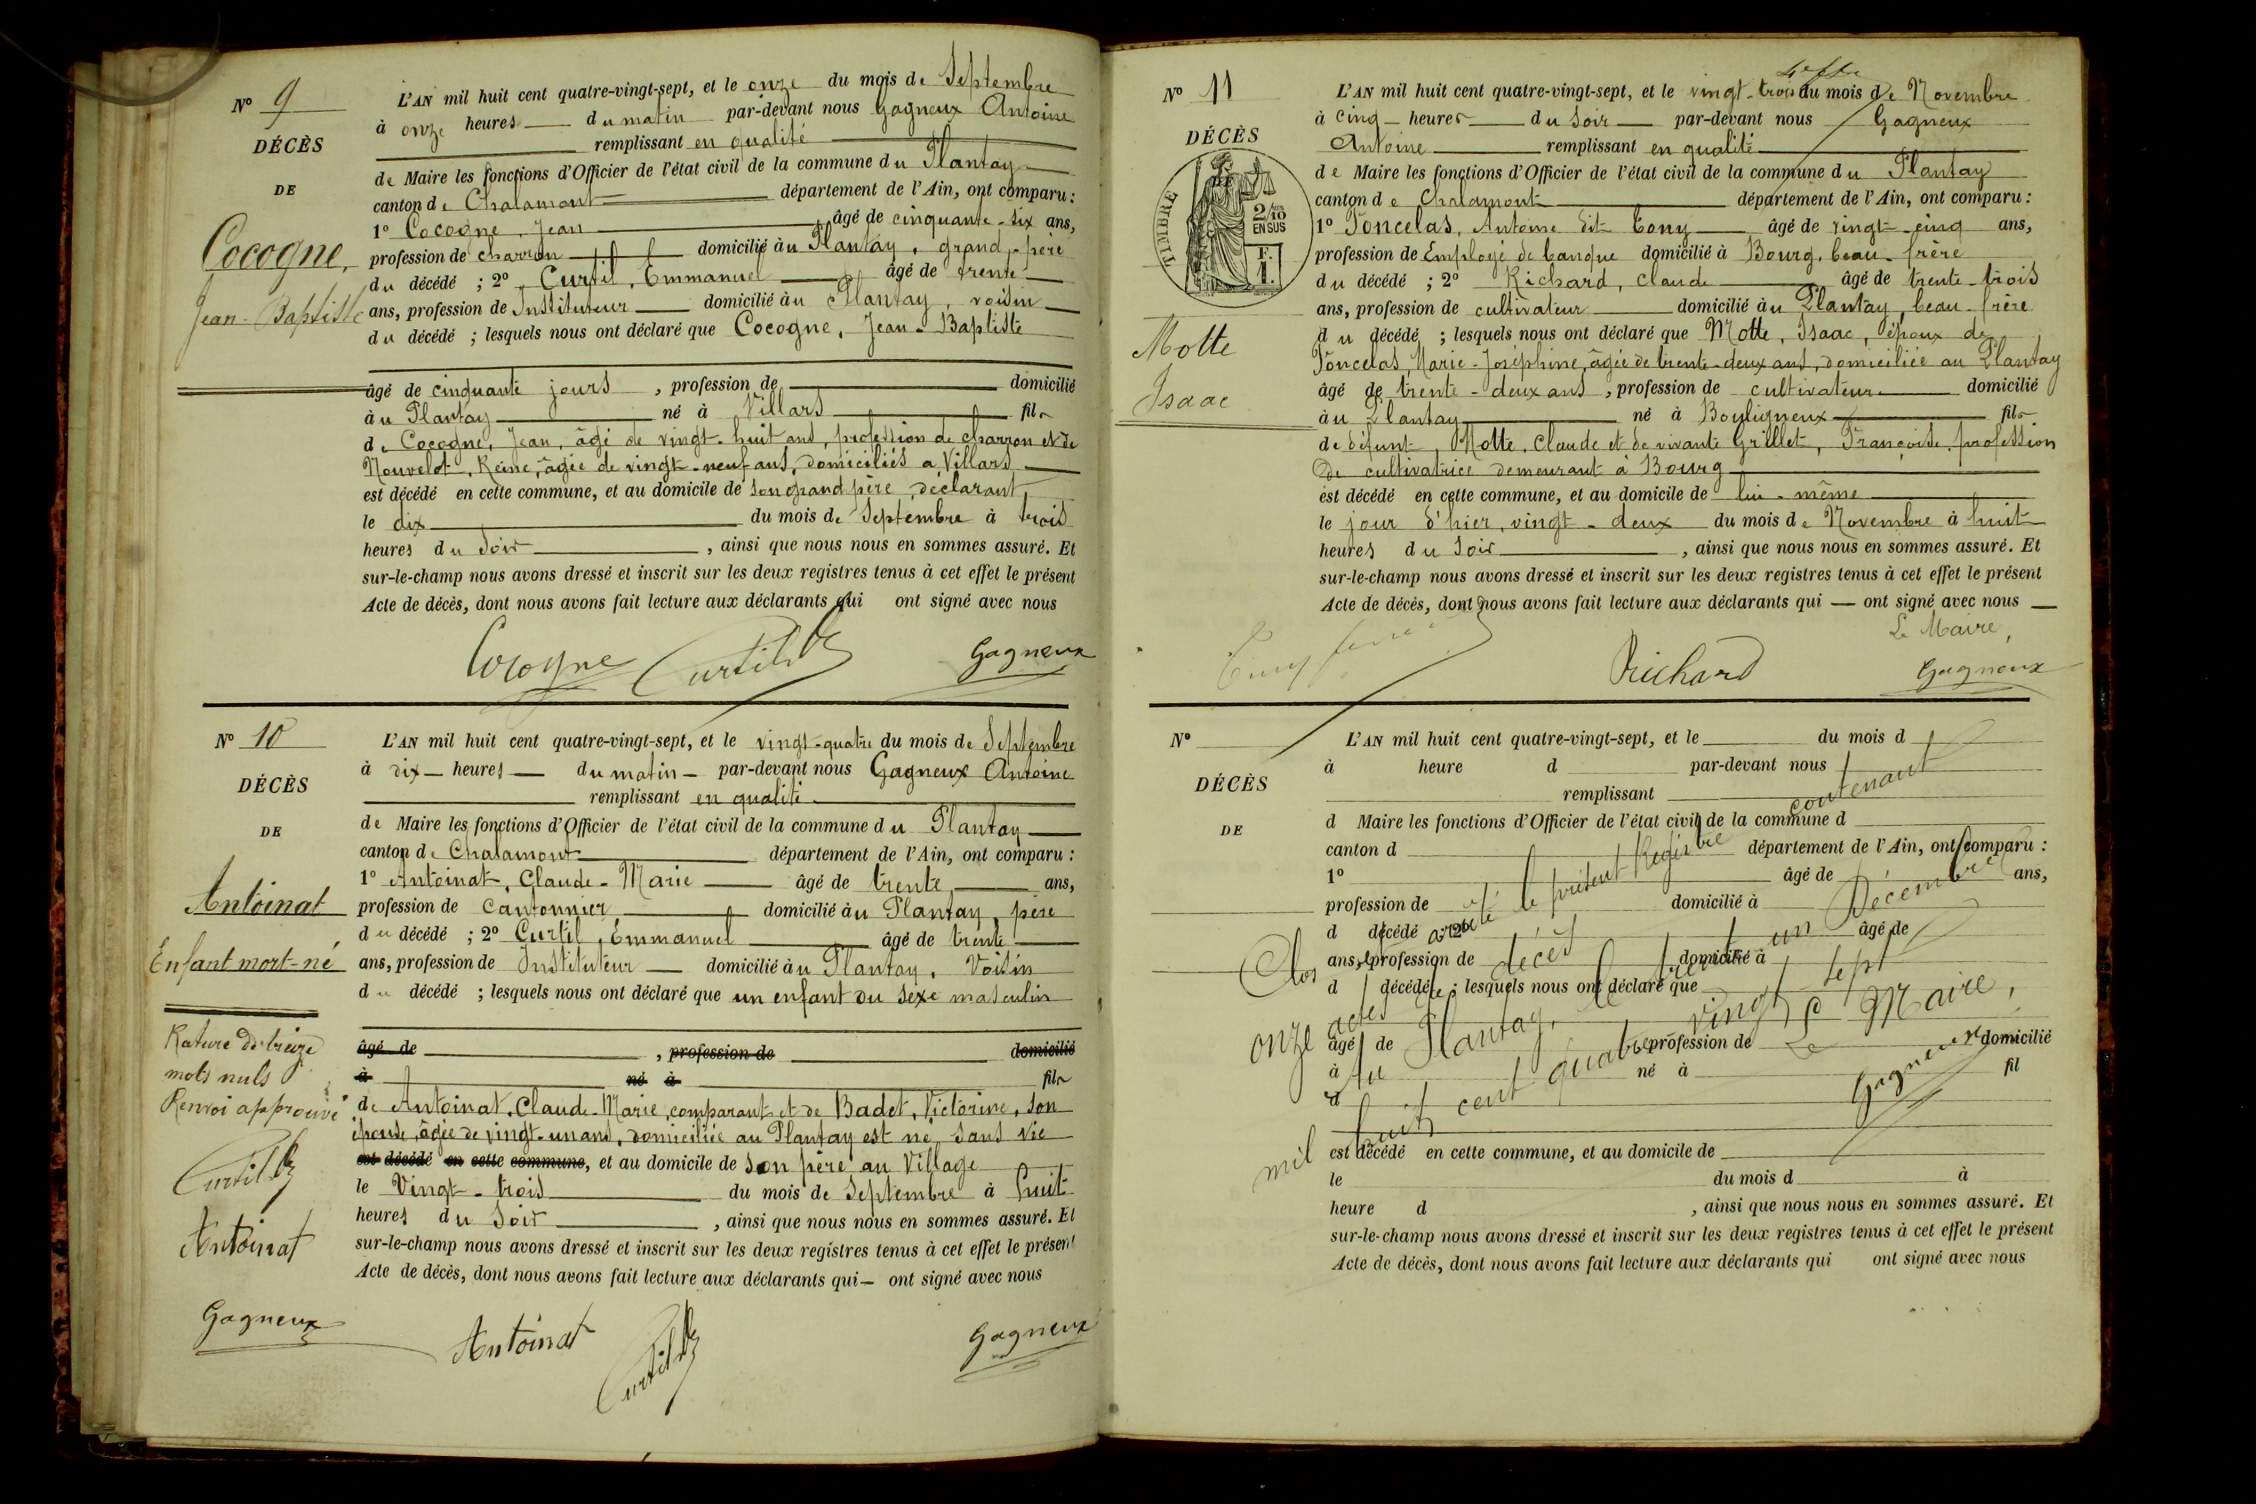 N° 9
DÉCÈS
DE
Cocogne,
Jean-Baptiste
L'AN mil huit cent quatre-vingt-sept, et le onze du mois de Septembre
à onze heures du matin par-devant nous Gagneux Antoine
remplissant en qualité
de Maire les fonctions d'Officier de l'état civil de la commune du Plantay
canton de Chalamont département de l'Ain, ont comparu :
1° Cocogne, Jean âgé de cinquante-six ans,
profession de charron domicilié au Plantay, grand-père
du décédé ; 2° Curtil, Emmanuel âgé de trente
ans, profession de Instituteur domicilié au Plantay, voisin
du décédé ; lesquels nous ont déclaré que Cocogne, Jean-Baptiste
âgé de cinquante jours , profession de domicilié
au Plantay né à Villars fils
de Cocogne, Jean, âgé de vingt-huit ans, profession de charron et de
Nouvelot, Reine, âgée de vingt-neuf ans, domiciliés a Villars
est décédé en cette commune, et au domicile de son grand père, déclarant,
le dix du mois de Septembre à trois
heures du Soir , ainsi que nous nous en sommes assuré. Et
sur-le-champ nous avons dressé et inscrit sur les deux registres tenus à cet effet le présent
Acte de décès, dont nous avons fait lecture aux déclarants qui ont signé avec nous
Cocogne Curtil Gagneux
N° 10
DÉCÈS
DE
Antoinat
Enfant mort-né
Rature de treize
mots nuls
Renvoi approuvé
Curtil
Antoinat
Gagneux
L'AN mil huit cent quatre-vingt-sept, et le vingt-quatre du mois de Septembre
à dix heures du matin par-devant nous Gagneux Antoine
remplissant en qualité
de Maire les fonctions d'Officier de l'état civil de la commune du Plantay
canton de Chalamont département de l'Ain, ont comparu :
1° Antoinat, Claude-Marie âgé de trente ans,
profession de Cantonnier, domicilié au Plantay, père
du décédé ; 2° Curtil, Emmanuel âgé de trente
ans, profession de Instituteur domicilié au Plantay, Voisin
du décédé ; lesquels nous ont déclaré que un enfant du sexe masculin
âgé de , profession de domicilié
à né à fils
de Antoinat, Claude-Marie, comparant et de Badet, Victorine, son
épouse, âgée de vingt-un ans, domiciliée au Plantay est né, sans vie
est décédé en cette commune, et au domicile de son père au Village
le Vingt-trois du mois de Septembre à huit
heures du Soir , ainsi que nous nous en sommes assuré. Et
sur-le-champ nous avons dressé et inscrit sur les deux registres tenus à cet effet le présent
Acte de décès, dont nous avons fait lecture aux déclarants qui ont signé avec nous
Antoinat Curtil Gagneux
N° 11
DÉCÈS
DE
TIMBRE
2/10
EN SUS
F.
1.
Motte
Isaac
L'AN mil huit cent quatre-vingt-sept, et le vingt-trois du mois de Novembre
à cinq heures du Soir par-devant nous Gagneux
Antoine remplissant en qualité
de Maire les fonctions d'Officier de l'état civil de la commune du Plantay
canton de Chalamont département de l'Ain, ont comparu :
1° Poncelas, Antoine dit Tony âgé de vingt-cinq ans,
profession de Employé de banque domicilié à Bourg, beau-frère
du décédé ; 2° Richard, Claude âgé de trente-trois
ans, profession de cultivateur domicilié au Plantay, beau-frère
du décédé ; lesquels nous ont déclaré que Motte, Isaac, époux de
Poncelas, Marie-Joséphine, âgée de trente-deux ans, domiciliée au Plantay
âgé de trente-deux ans, profession de cultivateur domicilié
au Plantay né à Bouligneux fils
de défunt, Motte, Claude et de vivante Grillet, Françoise, profession
de cultivatrice demeurant à Bourg
est décédé en cette commune, et au domicile de lui-même
le jour d'hier, vingt-deux du mois de Novembre à huit
heures du Soir , ainsi que nous nous en sommes assuré. Et
sur-le-champ nous avons dressé et inscrit sur les deux registres tenus à cet effet le présent
Acte de décès, dont nous avons fait lecture aux déclarants qui ont signé avec nous
Le Maire,
Richard Gagneux
N°
DÉCÈS
DE
L'AN mil huit cent quatre-vingt-sept, et le du mois d
à heure d par-devant nous
remplissant
d Maire les fonctions d'Officier de l'état civil de la commune d
canton d département de l'Ain, ont comparu :
1° âgé de ans,
profession de domicilié à
d décédé ; 2° âgé de
ans, profession de domicilié à
d décédé ; lesquels nous ont déclaré que
âgé de , profession de domicilié
à né à fil
d
est décédé en cette commune, et au domicile de
le du mois d à
heure d , ainsi que nous nous en sommes assuré. Et
sur-le-champ nous avons dressé et inscrit sur les deux registres tenus à cet effet le présent
Acte de décès, dont nous avons fait lecture aux déclarants qui ont signé avec nous
Clos et arrêté le présent Registre contenant
onze actes de décès
du Plantay, le trente un Décembre
mil huit cent quatre vingt sept
Le Maire,
Gagneux